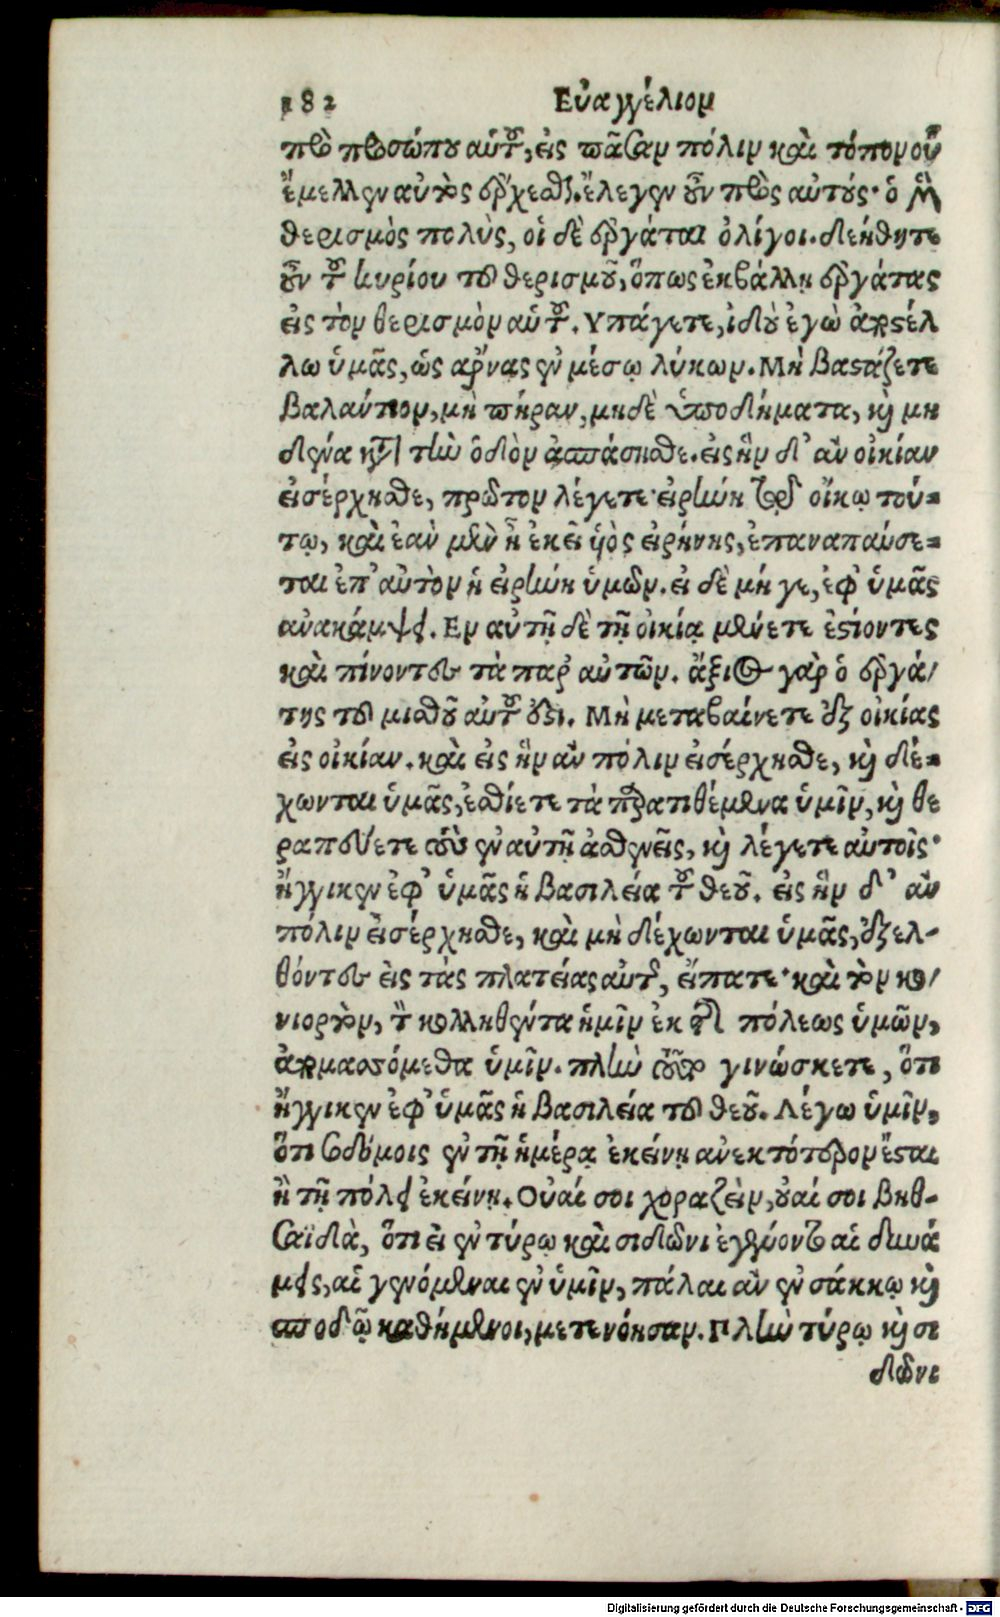 182 Εὐαγγέλιον
πρὸ προσώπου αὑτοῦ, εἰς πᾶσαν πόλιν καὶ τόπον οὗ
ἔμελλεν αὐτὸς ἔρχεσθαι. ἔλεγεν οὖν πρὸς αὐτούς· ὁ μὲν
θερισμὸς πολὺς, οἱ δὲ ἐργάται ὀλίγοι. δεήθητε
οὖν τοῦ κυρίου τοῦ θερισμοῦ, ὅπως ἐκβάλλῃ ἐργάτας
εἰς τὸν θερισμὸν αὑτοῦ. Υπάγετε, ἰδοὺ ἐγὼ ἀποστέλ
λω ὑμᾶς, ὡς ἄρνας ἐν μέσῳ λύκων. Μὴ βαστάζετε
βαλάντιον, μὴ πήραν, μηδὲ ὑποδήματα, καὶ μη
δένα κατὰ τὴν ὁδὸν ἀσπάσησθε. εἰς ἣν δ' ἂν οἰκίαν
εἰσέρχησθε, πρῶτον λέγετε· εἰρήνη τῷ οἴκῳ τού-
τῳ, καὶ ἐὰν μὲν ᾖ ἐκεῖ υἱὸς εἰρήνης, ἐπαναπαύσε-
ται ἐπ' αὐτὸν ἡ εἰρήνη ὑμῶν. εἰ δὲ μή γε, ἐφ' ὑμᾶς
ἀνακάμψει. Εν αὐτῇ δὲ τῇ οἰκίᾳ μένετε ἐσίοντες
καὶ πίνοντες τὰ παρ' αὐτῶν. ἄξιος γὰρ ὁ ἐργά/
της τοῦ μισθοῦ αὐτοῦ ἐστι. Μὴ μεταβαίνετε ἐξ οἰκίας
εἰς οἰκίαν. καὶ εἰς ἣν ἂν πόλιν εἰσέρχησθε, καὶ δέ-
χωνται ὑμᾶς, ἐσθίετε τὰ παρατιθέμενα ὑμῖν, καὶ θε
ραπεύετε τοὺς ἐν αὐτῇ ἀσθενεῖς, καὶ λέγετε αὐτοῖς·
ἤγγικεν ἐφ' ὑμᾶς ἡ βασιλεία τοῦ θεοῦ. εἰς ἣν δ' ἂν
πόλιν εἰσέρχησθε, καὶ μὴ δέχωνται ὑμᾶς, ἐξελ-
θόντες εἰς τὰς πλατείας αὐτῆς, εἴπατε· καὶ τὸν κο/
νιορτὸν, τὸν κολληθέντα ἡμῖν ἐκ τῆς πόλεως ὑμῶν,
ἀπομασσόμεθα ὑμῖν. πλὴν τοῦτο γινώσκετε, ὅτι
ἤγγικεν ἐφ' ὑμᾶς ἡ βασιλεία τοῦ θεοῦ. Λέγω ὑμῖν,
ὅτι σοδόμοις ἐν τῇ ἡμέρᾳ ἐκείνῃ ἀνεκτότερον ἔσται
ἢ τῇ πόλει ἐκείνῃ. Οὐαί σοι χοραζεὶν, οὐαί σοι βηθ-
σαϊδὰ, ὅτι εἰ ἐν τύρῳ καὶ σιδῶνι ἐγένοντο αἱ δυνά
μεις, αἱ γενόμεναι ἐν ὑμῖν, πάλαι ἂν ἐν σάκκῳ καὶ
σποδῷ καθήμενοι, μετενόησαν. Πλὴν τύρῳ καὶ σι
δῶνι
Digitalisierung gefördert durch die Deutsche Forschungsgemeinschaft - DFG